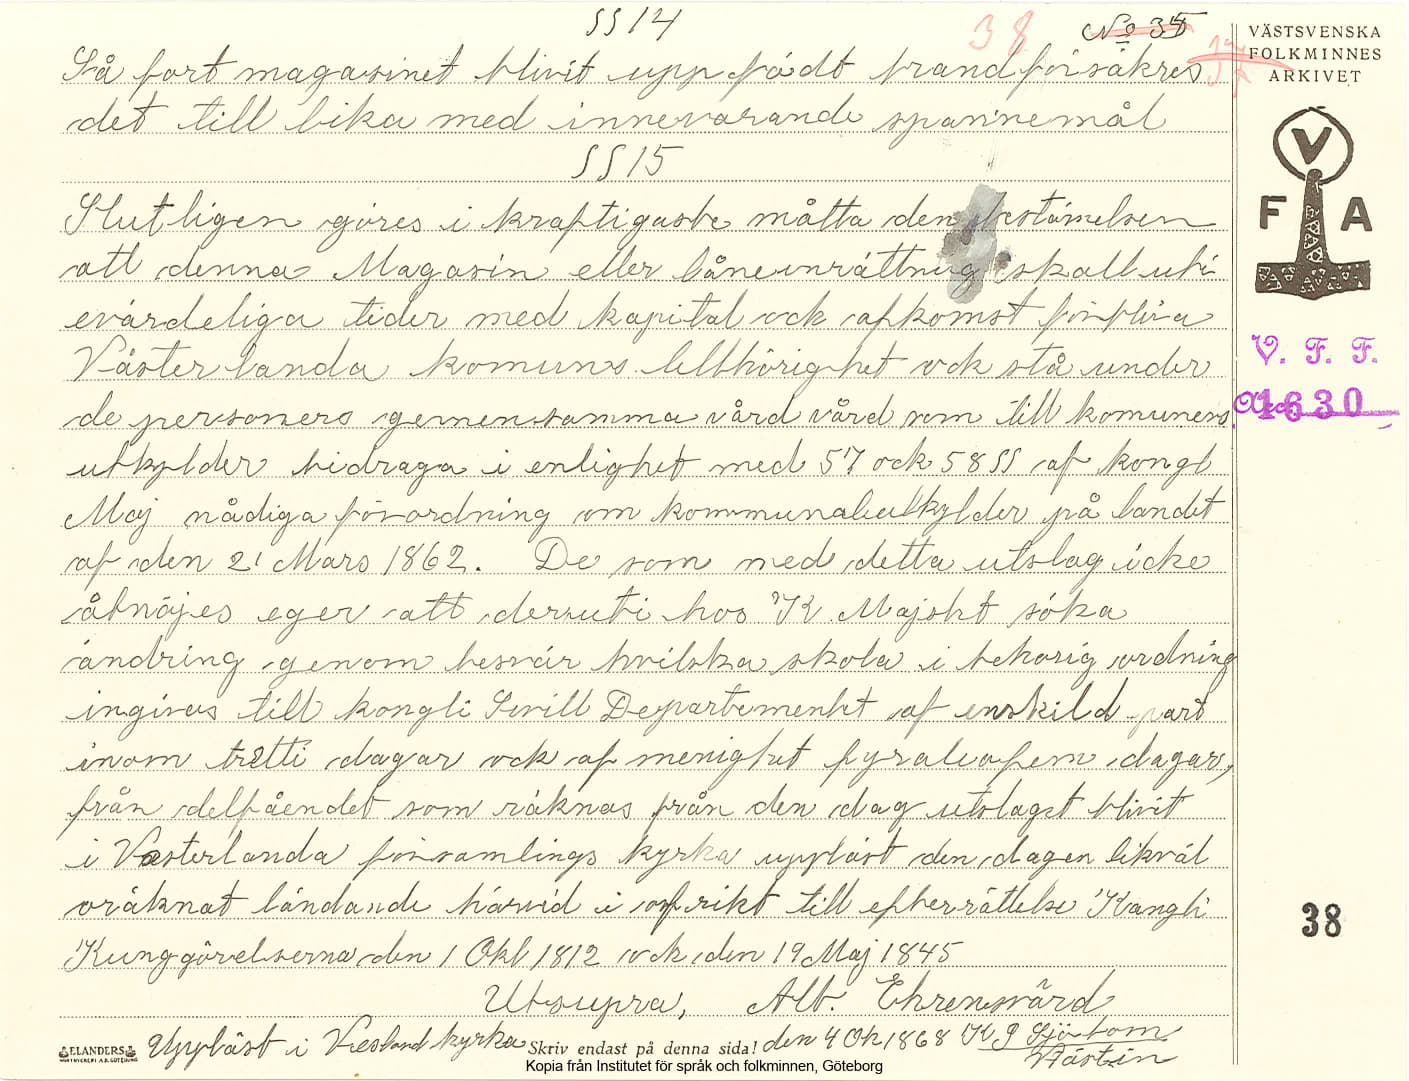 §§ 14
38
No 35
VÄSTSVENSKA
FOLKMINNES
ARKIVET
Så fort magasinet blivit upp födt brandförsäkres
det till lika med innevarande spannemål
§§ 15
Slutligen göres i kraftigaste måtta den bestämelsen
att denna Magasin eller låneinrättning skall uti
evärdeliga tider med kapital ock afkomst förbliva
Västerlanda komuns tillhörighet ock stå under
de personers gemensamma vård vård som till komunens
utskylder bidraga i enlighet med 57 ock 58 §§ af kongl
Maj nådiga förordning om kommunalutskylder på landet
af den 21 Mars 1862. De som med detta utslag icke
åtnöjes eger att deruti hos K Majstt söka
ändring genom besvär hvilska skola i behorig ordning
ingivas till kongli Sivill Departementet af enskild part
inom tretti dagar ock af menighet fyratiofem dagar,
från delfåendet som räknas från den dag utslaget blivit
i Västerlanda församlings kyrka uppläst den dagen likväl
oräknat ländande härvid i öfrikt till efterrättelse Kongli
Kunggörelserna den 1 Okt 1812 ock den 19 Maj 1845
Utsupra, Alb. Ehrensvärd
Uppläst i Vesland kyrka den 4 Ok 1868 K P Sjöstom
Västin
V
F A
V. F. F.
1630
38
ELANDERS
Skriv endast på denna sida!
Kopia från Institutet för språk och folkminnen, Göteborg